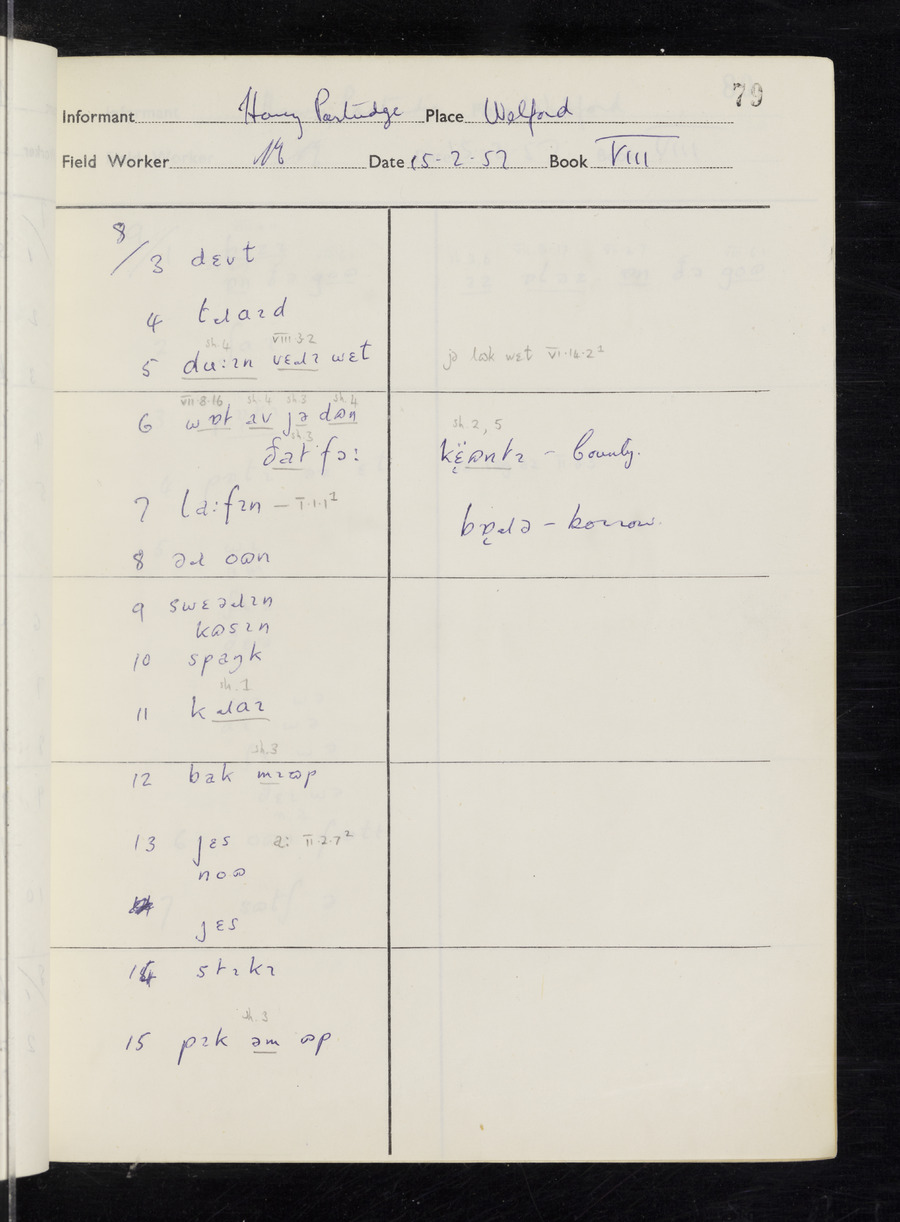 79
Informant Harry Partridge Place Welford
Field Worker Date 15-2-57 Book VIII
8/3 dɛvt
4 tɹaɪd
sh.4 VIII 3.2
5 dʊ:ɪn vɛɹɪ wɛt
jə lɒsk wɛt VI.14.2¹
VII.8.16 sh.4 sh.3 sh.4
6 wɒt av jə dʊn
sh.3
ðat fɔ:
sh. 2, 5
kɛ̈ʊntɪ – County.
7 la:fɪn – I.1.1¹
bɒ̜ɹə – borrow.
8 əɹ oʊn
9 swɛəɹɪn
kʊsɪn
10 spaŋk
sh.1
11 kɹaɪ
sh.3
12 bak mɪʊp
13 jɛs a: II.2.7²
noʊ
jɛs
14 stɪkɪ
sh.3
15 pɪk əm ʊp